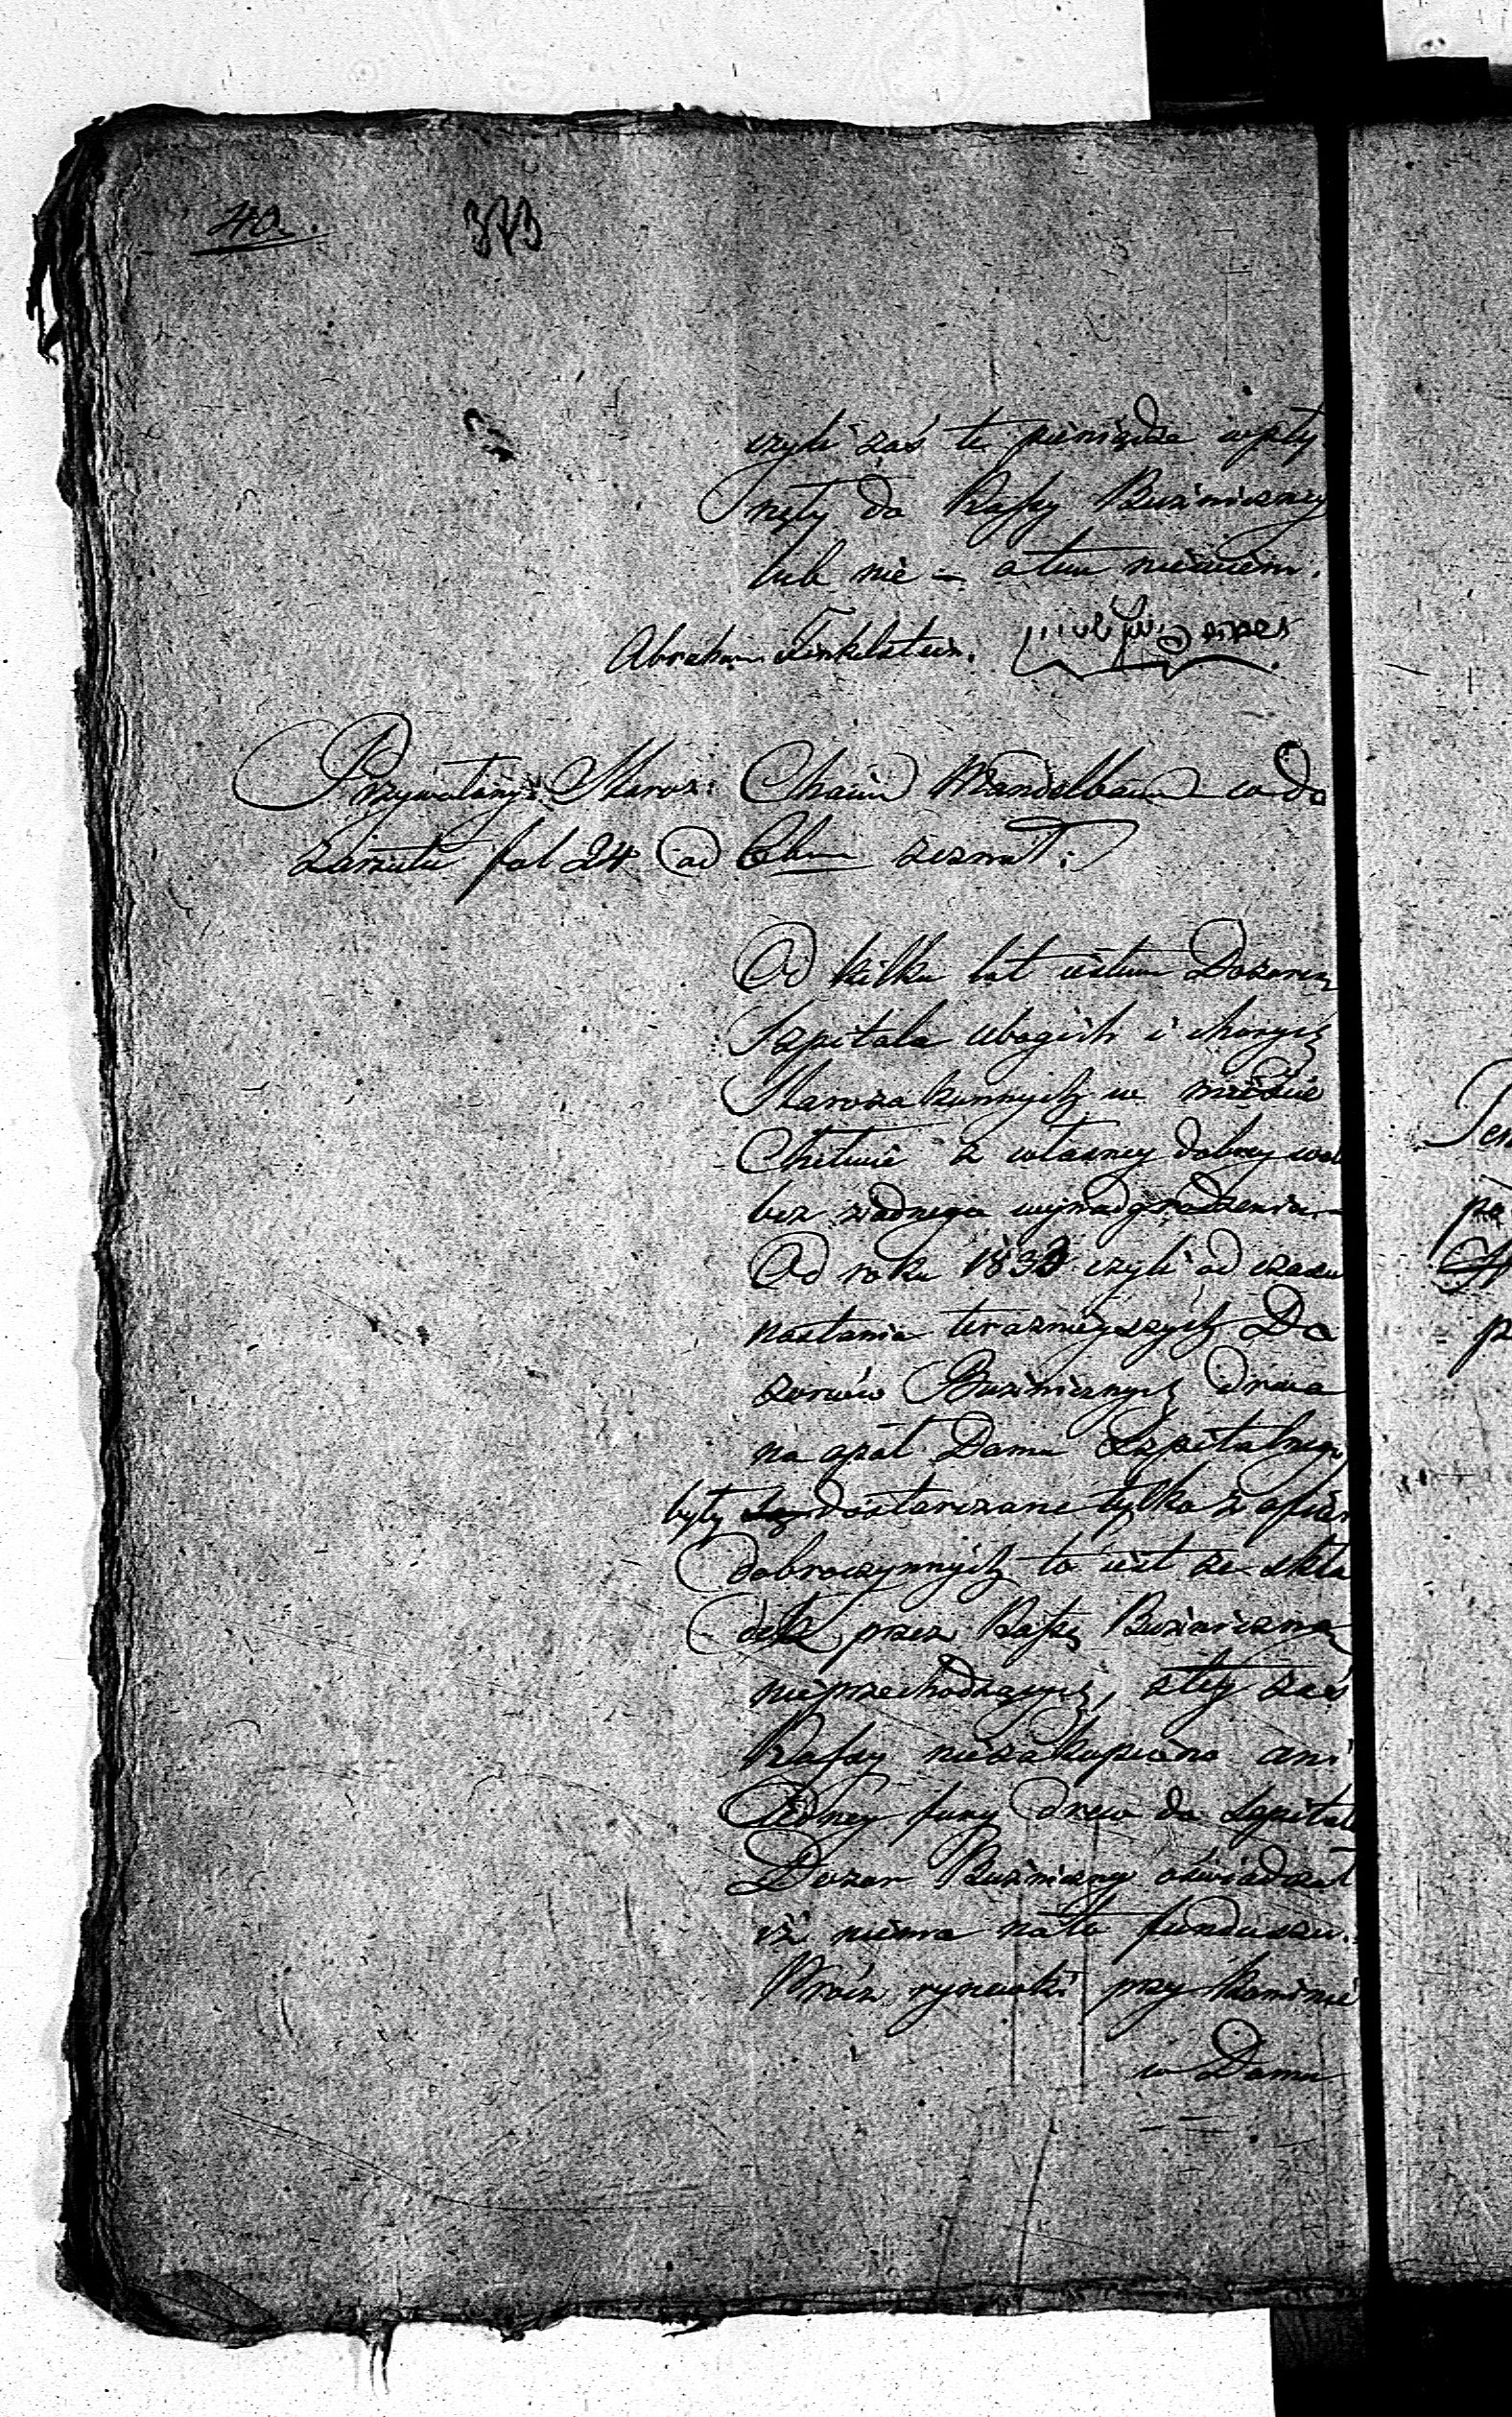 40. 373
czyli zaś te pieniądze wpły
nęły do Kassy Bużniczney
lub nie – otem niewiem.
Abraham Finkelstein.
Przywołany Staroz: Chaim Mandelbaum co do
zarzutu fol 24 ad zeznał:
Od kilku lat iestem Dozorcą
Szpitala ubogich i chorych
Starozakonnych w mieście
Chełmie z własney dobrey wol
bez żadnego wynadgrodzenia –
Od roku 1833 czyli od czasu
nastania teraznieyszych Do
zorców Bużnicznych drwa
na opał Domu Szpitalnego
były dostarczane tylko z ofiar
dobroczynnych to iest ze skła
dek przez Kassę Bużniczną
nieprzechodzących, z tey zaś
Kassy niezakupiono ani
iedney fury drew do Szpitala
Dozor Bużniczny oświadczał
iż niema na to funduszu.
Prócz rynewki przy Kominie
w Domu